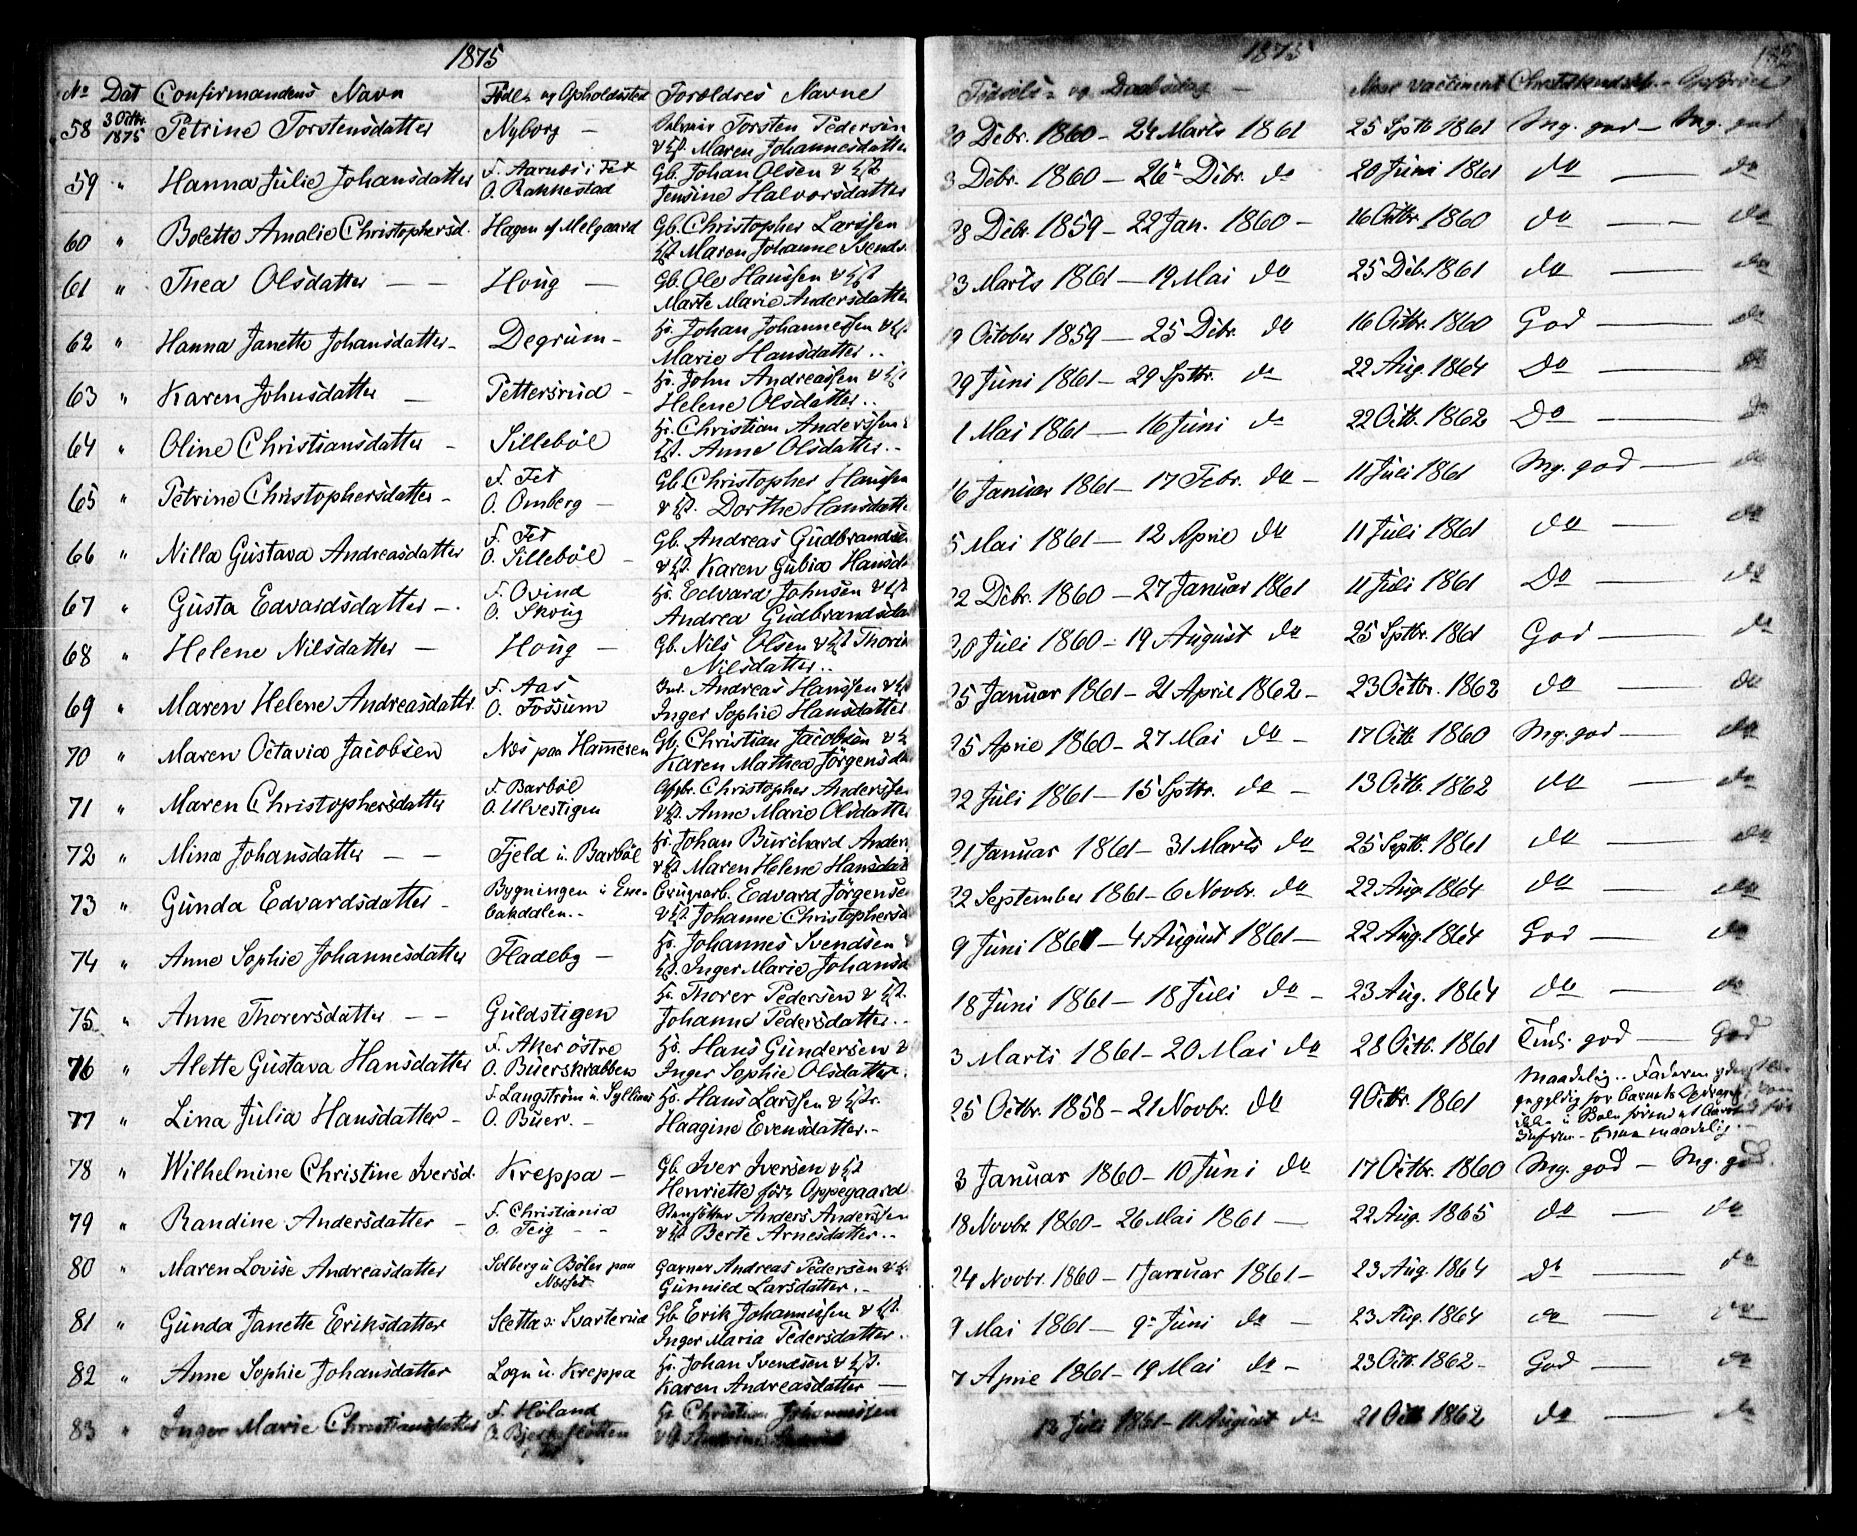 1875
No Dat Confirmandens Navn Föde- og Opholdssted Forældres Navne
58 3 Octbr. 1875 Petrine Torstensdatter Nyborg — Torsten Pedersen
& Hst. Maren Johannesdatter
59 " Hanna Julie Johansdatter F. i Fet O. Rakkestad Gb. Johan Olsen & Hst
Jensine Halvorsdatter
60 " Bolette Amalie Christophersd. Hagen af Melgaard Gb. Christopher Larssen
Hst Maren Johanne Svends.
61 " Thea Olsdatter — — Houg — Gb. Ole Hanssen & Hst
Marte Marie Andersdatter
62 " Hanna Janette Johansdatter — Degrum — Hs. Johan Johannessen & Hst
Marie Hansdatter ..
63 " Karen Johnsdatter — Pettersrud — Hs. John Andreassen & Hst
Helene Olsdatter ..
64 " Oline Christiansdatter — Silleböl Hs. Christian Anderssen &
Hst. Anne Olsdatter. -
65 " Petrine Christophersdatter — F. Fet O. Omberg — Gb. Christopher Hanssen
& Hst. Dorthe Hansdatter
66 " Nilla Gustava Andreasdatter F. Fet O. Silleböl — Gb. Andreas Gudbrandsen
& Hst. Karen Gubia Hansd.
67 " Gusta Edvardsdatter — . F. Ovind O. Skoug Hs. Edvard Johnsen & Hst
Andrea Gudbrandsdat
68 " Helene Nilsdatter — Houg — Gb. Nils Olsen & Hst Thorine
Nilsdatter ..
69 " Maren Helene Andreasdattr. F. Aas O. Fossum Andreas Hanssen & Hst
Inger Sophie Hansdatter
70 " Maren Octavia Jacobsen Næs paa Hammeren Gb. Christian Jacobsen & H
Karen Mathea Jörgensdat
71 " Maren Christophersdatter F. Barböl O. Ulvestigen Christopher Anderssen
& Hst. Anne Marie Olsdatter
72 " Mina Johansdatter — — Fjeld u. Barböl Hs. Johan Burchard Anders
& Hst Maren Helene Hansdat
73 " Gunda Edvardsdatter — Bygningen i Ene- bakdalen.- Brugsarb. Edvard Jörgensen
& Hst Johanne Christophersd
74 " Anne Sophie Johannesdatter Fladeby — Hs. Johannes Svendsen &
Hst. Inger Marie Johansd
75 " Anne Thorersdatter — — Guldstigen Hs. Thorer Pedersen & Hst.
Johanne Pedersdatter. -
76 " Alette Gustava Hansdatter F. Aker östre O. Buerskrabben Hs. Hans Gundersen &
Inger Sophie Olsdatter.
77 " Lina Julia Hansdatter — F. Langström u. Sylliaas O. Buer. — Hs. Hans Larssen & Hstr.
Haagine Evensdatter. -
78 " Wilhelmine Christine Iversd. Kreppa — Gb. Iver Iversen & Hst
Henriette förs Oppegaard
79 " Randine Andersdatter — F. Christiania O. Teig - - Anders Anderssen
& Hst Berte Arnesdatter. -
80 " Maren Lovise Andreasdatter Solberg u Böler paa Næsset Garver Andreas Pedersen & H.
Gunnild Larsdatter. -
81 " Gunda Janette Eriksdatter Sletta u. Svarterud Gb. Erik Johannessen & Hst.
Inger Maria Pedersdatter.
82 " Anne Sophie Johansdatter Logn u. Kreppa Hs. Johan Svendsen & Hst.
Karen Andreasdatter —
83 " Inger Marie Christiansdatter F. Höland O. Bjerkeflötten Hs. Christian Johannessen
1875
Födsels- og Daabsdag — Naar vaccineret Christ.kundsk. - Opförsel
20 Debr. 1860 — 24 Marts 1861 25 Sptb 1861 Mg. god — Mg. god
3 Debr. 1860 — 26" Debr. do 20 Juni 1861 do — do
28 Debr. 1859 — 22 Jan. 1860 — 16 Octbr. 1860 do — do
23 Marts 1861 — 19 Mai do 25 Deb. 1861 do — do
19 October 1859 — 25 Debr. do 16 Octbr. 1860 God — do
29 Juni 1861 — 29 Sptbr. do 22 Aug. 1864 Do — do
1 Mai 1861 — 16 Juni do 22 Octb. 1862 Do — do
16 Januar 1861 — 17 Febr. do — 11 Juli 1861 Mg. god — do
5 Mai 1861 — 12 April do 11 Juli 1861 do — do
22 Debr. 1860 — 27 Januar 1861 11 Juli 1861 Do — do
20 Juli 1860 — 19 August do 25 Sptbr. 1861 God — do
25 Januar 1861 — 21 April 1862 — 23 Octbr. 1862 do — do
25 April 1860 — 27 Mai do — 17 Octb 1860 Mg. god — do
22 Juli 1861 — 15 Sptbr. do — 13 Octb. 1862 do — do
21 Januar 1861 — 31 Marts do 25 Septb. 1861 do — do
22 September 1861 — 6 Novbr. do 22 Aug 1864 do — do
9 Juni 1861 — 4 August 1861 — 22 Aug. 1864 God — do
18 Juni 1861 — 18 Juli do — 23 Aug. 1864 do — do
3 Marts 1861 — 20 Mai do 28 Octb. 1861 Tml. god — God
25 Octbr. 1858 — 21 Novbr. do 9 Octbr. 1861 Maadelig .. Faderen
for Barnets
maadelig. -
3 Januar 1860 — 10 Juni do 17 Octbr. 1860 Mg. god — Mg. god.
18 Novbr 1860 — 26 Mai 1861 — 22 Aug. 1865 do — do
24 Novbr. 1860 — 1 Januar 1861 — 23 Aug. 1864 do — do
9 Mai 1861 — 9- Juni do — 23 Aug. 1864 do — do
7 April 1861 — 19 Mai do — 23 Octb. 1862 — God — do
13 Juli 1861 — 11 August do 21 Oct 1862 do — do